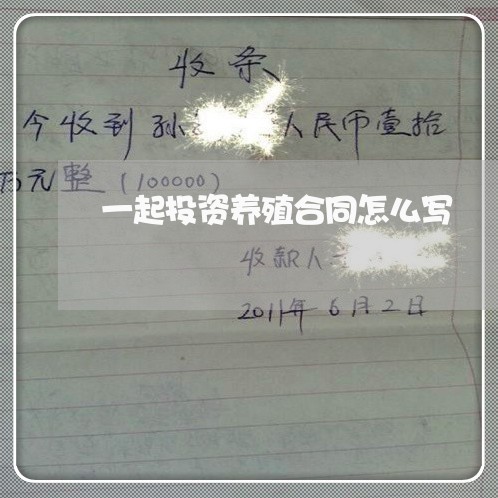 收条
今收到孙 人民币壹拾
万元整（100000）
一起投资养殖合同怎么写
收款人
2011年6月2日